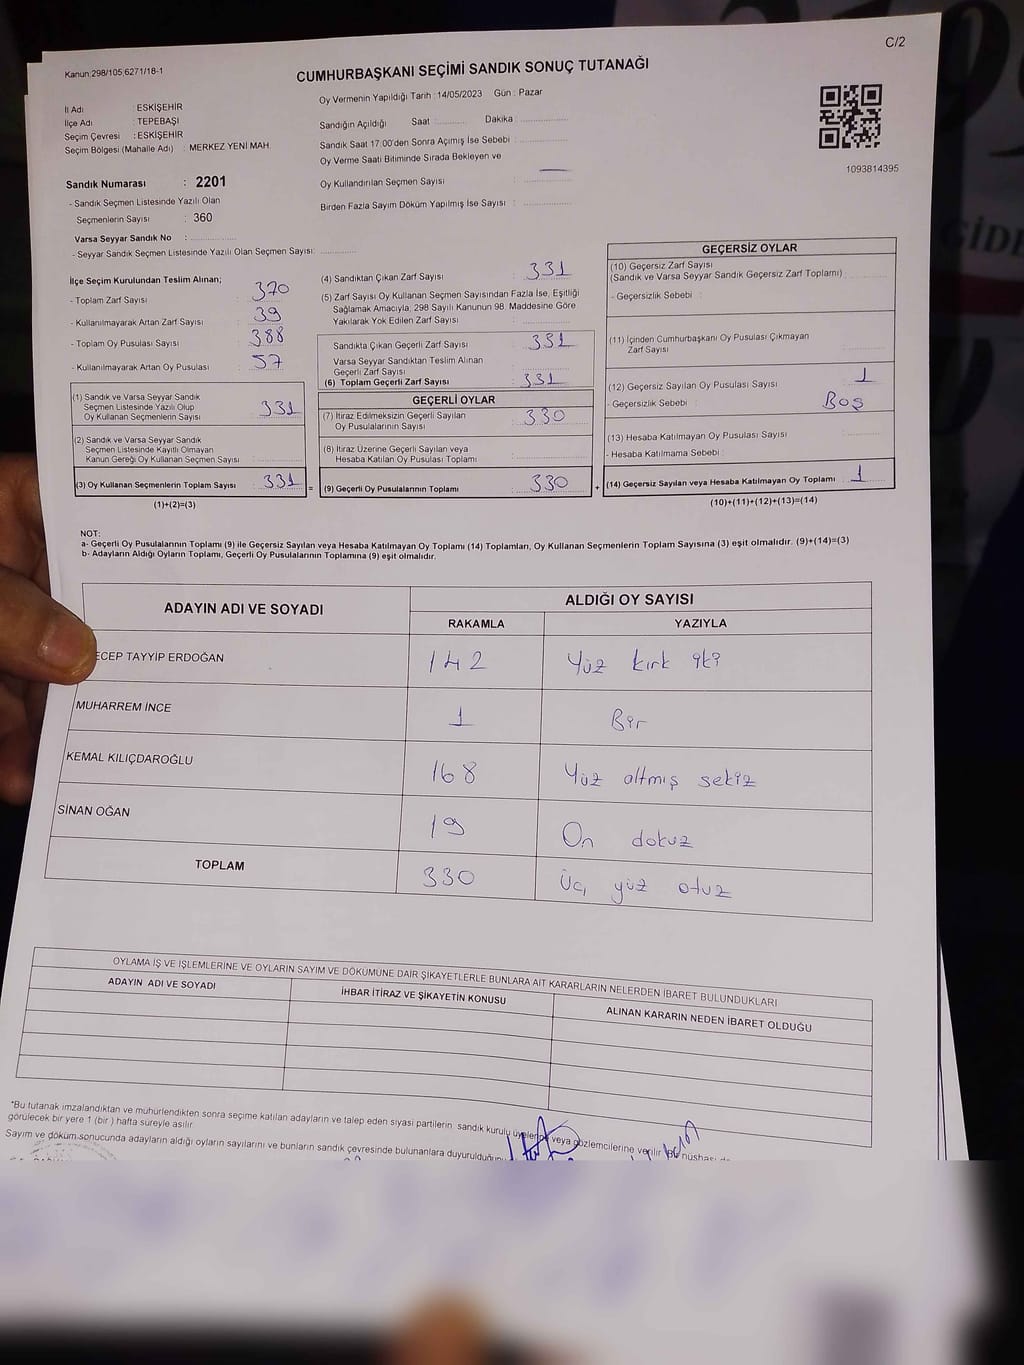 C/2
Kanun:298/105;6271/18-1
CUMHURBAŞKANI SEÇİMİ SANDIK SONUÇ TUTANAĞI
İl Adı : ESKİŞEHİR
İlçe Adı : TEPEBAŞI
Seçim Çevresi : ESKİŞEHİR
Seçim Bölgesi (Mahalle Adı) : MERKEZ YENİ MAH.
Oy Vermenin Yapıldığı Tarih : 14/05/2023 Gün : Pazar
Sandığın Açıldığı Saat : Dakika :
Sandık Saat 17.00'den Sonra Açımış İse Sebebi :
Oy Verme Saati Bitiminde Sırada Bekleyen ve
Oy Kullandırılan Seçmen Sayısı : —
Birden Fazla Sayım Döküm Yapılmış İse Sayısı :
1093814395
Sandık Numarası : 2201
- Sandık Seçmen Listesinde Yazılı Olan
Seçmenlerin Sayısı : 360
Varsa Seyyar Sandık No :
- Seyyar Sandık Seçmen Listesinde Yazılı Olan Seçmen Sayısı:
İlçe Seçim Kurulundan Teslim Alınan;
- Toplam Zarf Sayısı : 370
- Kullanılmayarak Artan Zarf Sayısı : 39
- Toplam Oy Pusulası Sayısı : 388
- Kullanılmayarak Artan Oy Pusulası : 57
(1) Sandık ve Varsa Seyyar Sandık
Seçmen Listesinde Yazılı Olup
Oy Kullanan Seçmenlerin Sayısı : 331
(2) Sandık ve Varsa Seyyar Sandık
Seçmen Listesinde Kayıtlı Olmayan
Kanun Gereği Oy Kullanan Seçmen Sayısı :
(3) Oy Kullanan Seçmenlerin Toplam Sayısı : 331 =
(1)+(2)=(3)
(4) Sandıktan Çıkan Zarf Sayısı : 331
(5) Zarf Sayısı Oy Kullanan Seçmen Sayısından Fazla İse, Eşitliği
Sağlamak Amacıyla, 298 Sayılı Kanunun 98. Maddesine Göre
Yakılarak Yok Edilen Zarf Sayısı :
Sandıkta Çıkan Geçerli Zarf Sayısı : 331
Varsa Seyyar Sandıktan Teslim Alınan
Geçerli Zarf Sayısı :
(6) Toplam Geçerli Zarf Sayısı : 331
GEÇERLİ OYLAR
(7) İtiraz Edilmeksizin Geçerli Sayılan
Oy Pusulalarının Sayısı : 330
(8) İtiraz Üzerine Geçerli Sayılan veya
Hesaba Katılan Oy Pusulası Toplamı :
(9) Geçerli Oy Pusulalarının Toplamı : 330 +
GEÇERSİZ OYLAR
(10) Geçersiz Zarf Sayısı
(Sandık ve Varsa Seyyar Sandık Geçersiz Zarf Toplamı) :
- Geçersizlik Sebebi :
(11) İçinden Cumhurbaşkanı Oy Pusulası Çıkmayan
Zarf Sayısı :
(12) Geçersiz Sayılan Oy Pusulası Sayısı : 1
- Geçersizlik Sebebi : Boş
(13) Hesaba Katılmayan Oy Pusulası Sayısı :
- Hesaba Katılmama Sebebi :
(14) Geçersiz Sayılan veya Hesaba Katılmayan Oy Toplamı : 1
(10)+(11)+(12)+(13)=(14)
NOT:
a- Geçerli Oy Pusulalarının Toplamı (9) ile Geçersiz Sayılan veya Hesaba Katılmayan Oy Toplamı (14) Toplamları, Oy Kullanan Seçmenlerin Toplam Sayısına (3) eşit olmalıdır. (9)+(14)=(3)
b- Adayların Aldığı Oyların Toplamı, Geçerli Oy Pusulalarının Toplamına (9) eşit olmalıdır.
ADAYIN ADI VE SOYADI ALDIĞI OY SAYISI
RAKAMLA YAZIYLA
ECEP TAYYİP ERDOĞAN 142 Yüz kırk iki
MUHARREM İNCE 1 Bir
KEMAL KILIÇDAROĞLU 168 Yüz altmış sekiz
SİNAN OĞAN 19 On dokuz
TOPLAM 330 Üç yüz otuz
OYLAMA İŞ VE İŞLEMLERİNE VE OYLARIN SAYIM VE DÖKÜMÜNE DAİR ŞİKAYETLERLE BUNLARA AİT KARARLARIN NELERDEN İBARET BULUNDUKLARI
ADAYIN ADI VE SOYADI İHBAR İTİRAZ VE ŞİKAYETİN KONUSU ALINAN KARARIN NEDEN İBARET OLDUĞU
*Bu tutanak imzalandıktan ve mühürlendikten sonra seçime katılan adayların ve talep eden siyasi partilerin sandık kurulu üyelerine veya gözlemcilerine verilir. Bir nüshası
görülecek bir yere 1 (bir) hafta süreyle asılır.
Sayım ve döküm sonucunda adayların aldığı oyların sayılarını ve bunların sandık çevresinde bulunanlara duyurulduğunu